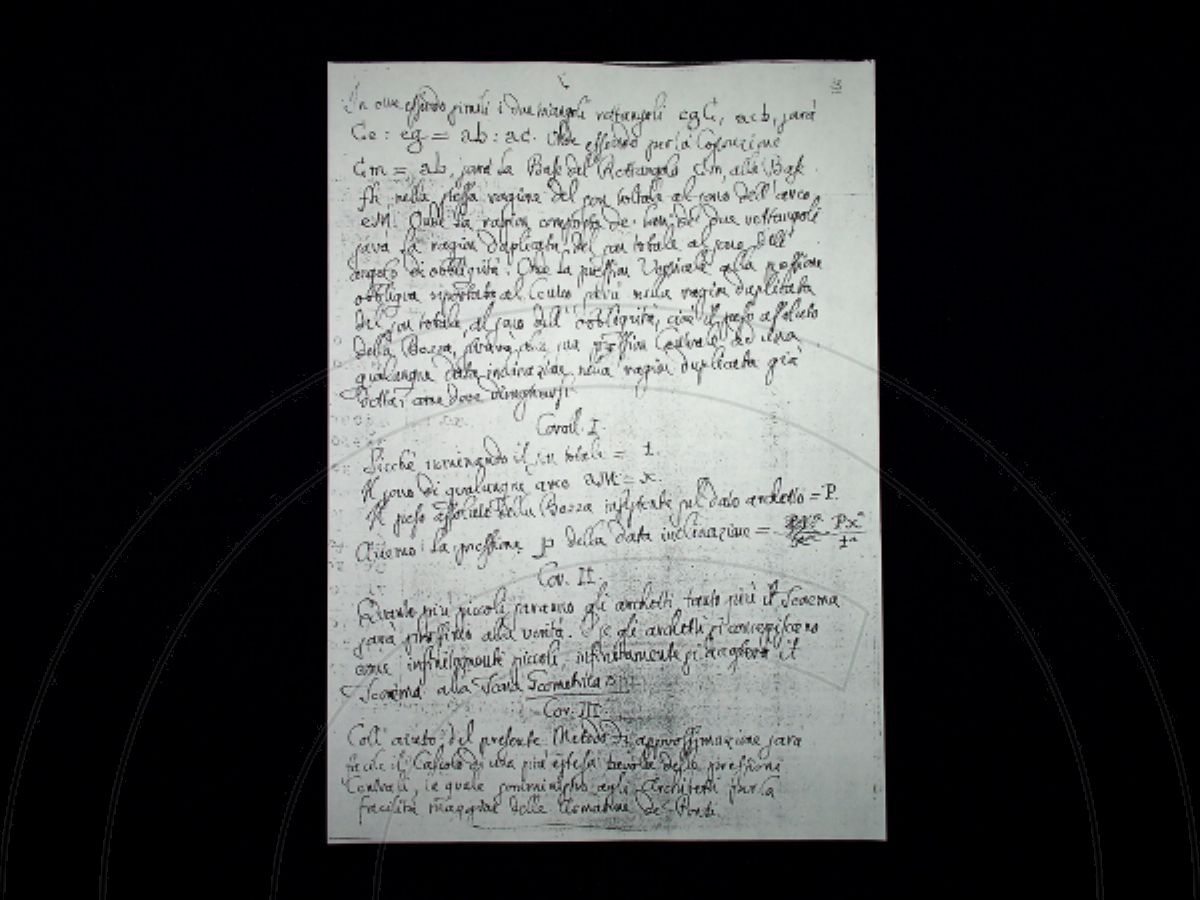 3
In oue essendo simili i due triangoli rettangoli egC, acb, sarà
Ce : eg = ab : ac. Onde essendo per la
Cm = ab, sarà la Base del Rettangolo Cm, alla Base
fh nella stessa ragione del sen totale al seno dell'arco
eM. Onde la ragion composta de' due rettangoli
sarà la ragion duplicata del sen totale al seno dell'
angolo di obbliquità. Onde la pression Verticale alla pressione
obbliqua riportata al Centro sarà nella ragion duplicata
del sen totale, al seno dell' obbliquità, cioè il peso assoluto
della Bozza, starà alla sua pression Centrale ad una
qualunque data inclinazion nella ragion duplicata già
detta, come dovea dimostrarsi.
Coroll. I.
Sicchè nominando il sen totale = 1.
Il seno di qualunque arco aM = x.
Il peso assoluto della Bozza insistente sul dato archetto = P.
Avremo la pressione p della data inclinazione = Px² / 1²
Cor. II.
Quanto più piccoli saranno gli archetti tanto più il Scema
sarà prossimo alla verità. E se gli archetti si concepiscono
come infinitamente piccoli, infinitamente si il
Scema alla Scala Geometrica
Cor. III.
Coll' aiuto del presente Metodo di approssimazione sarà
facile il Calcolo di una più estesa tavola delle pressioni
Centrali, la quale somministra agli Architetti per la
facilità maggiore delle de' Ponti.